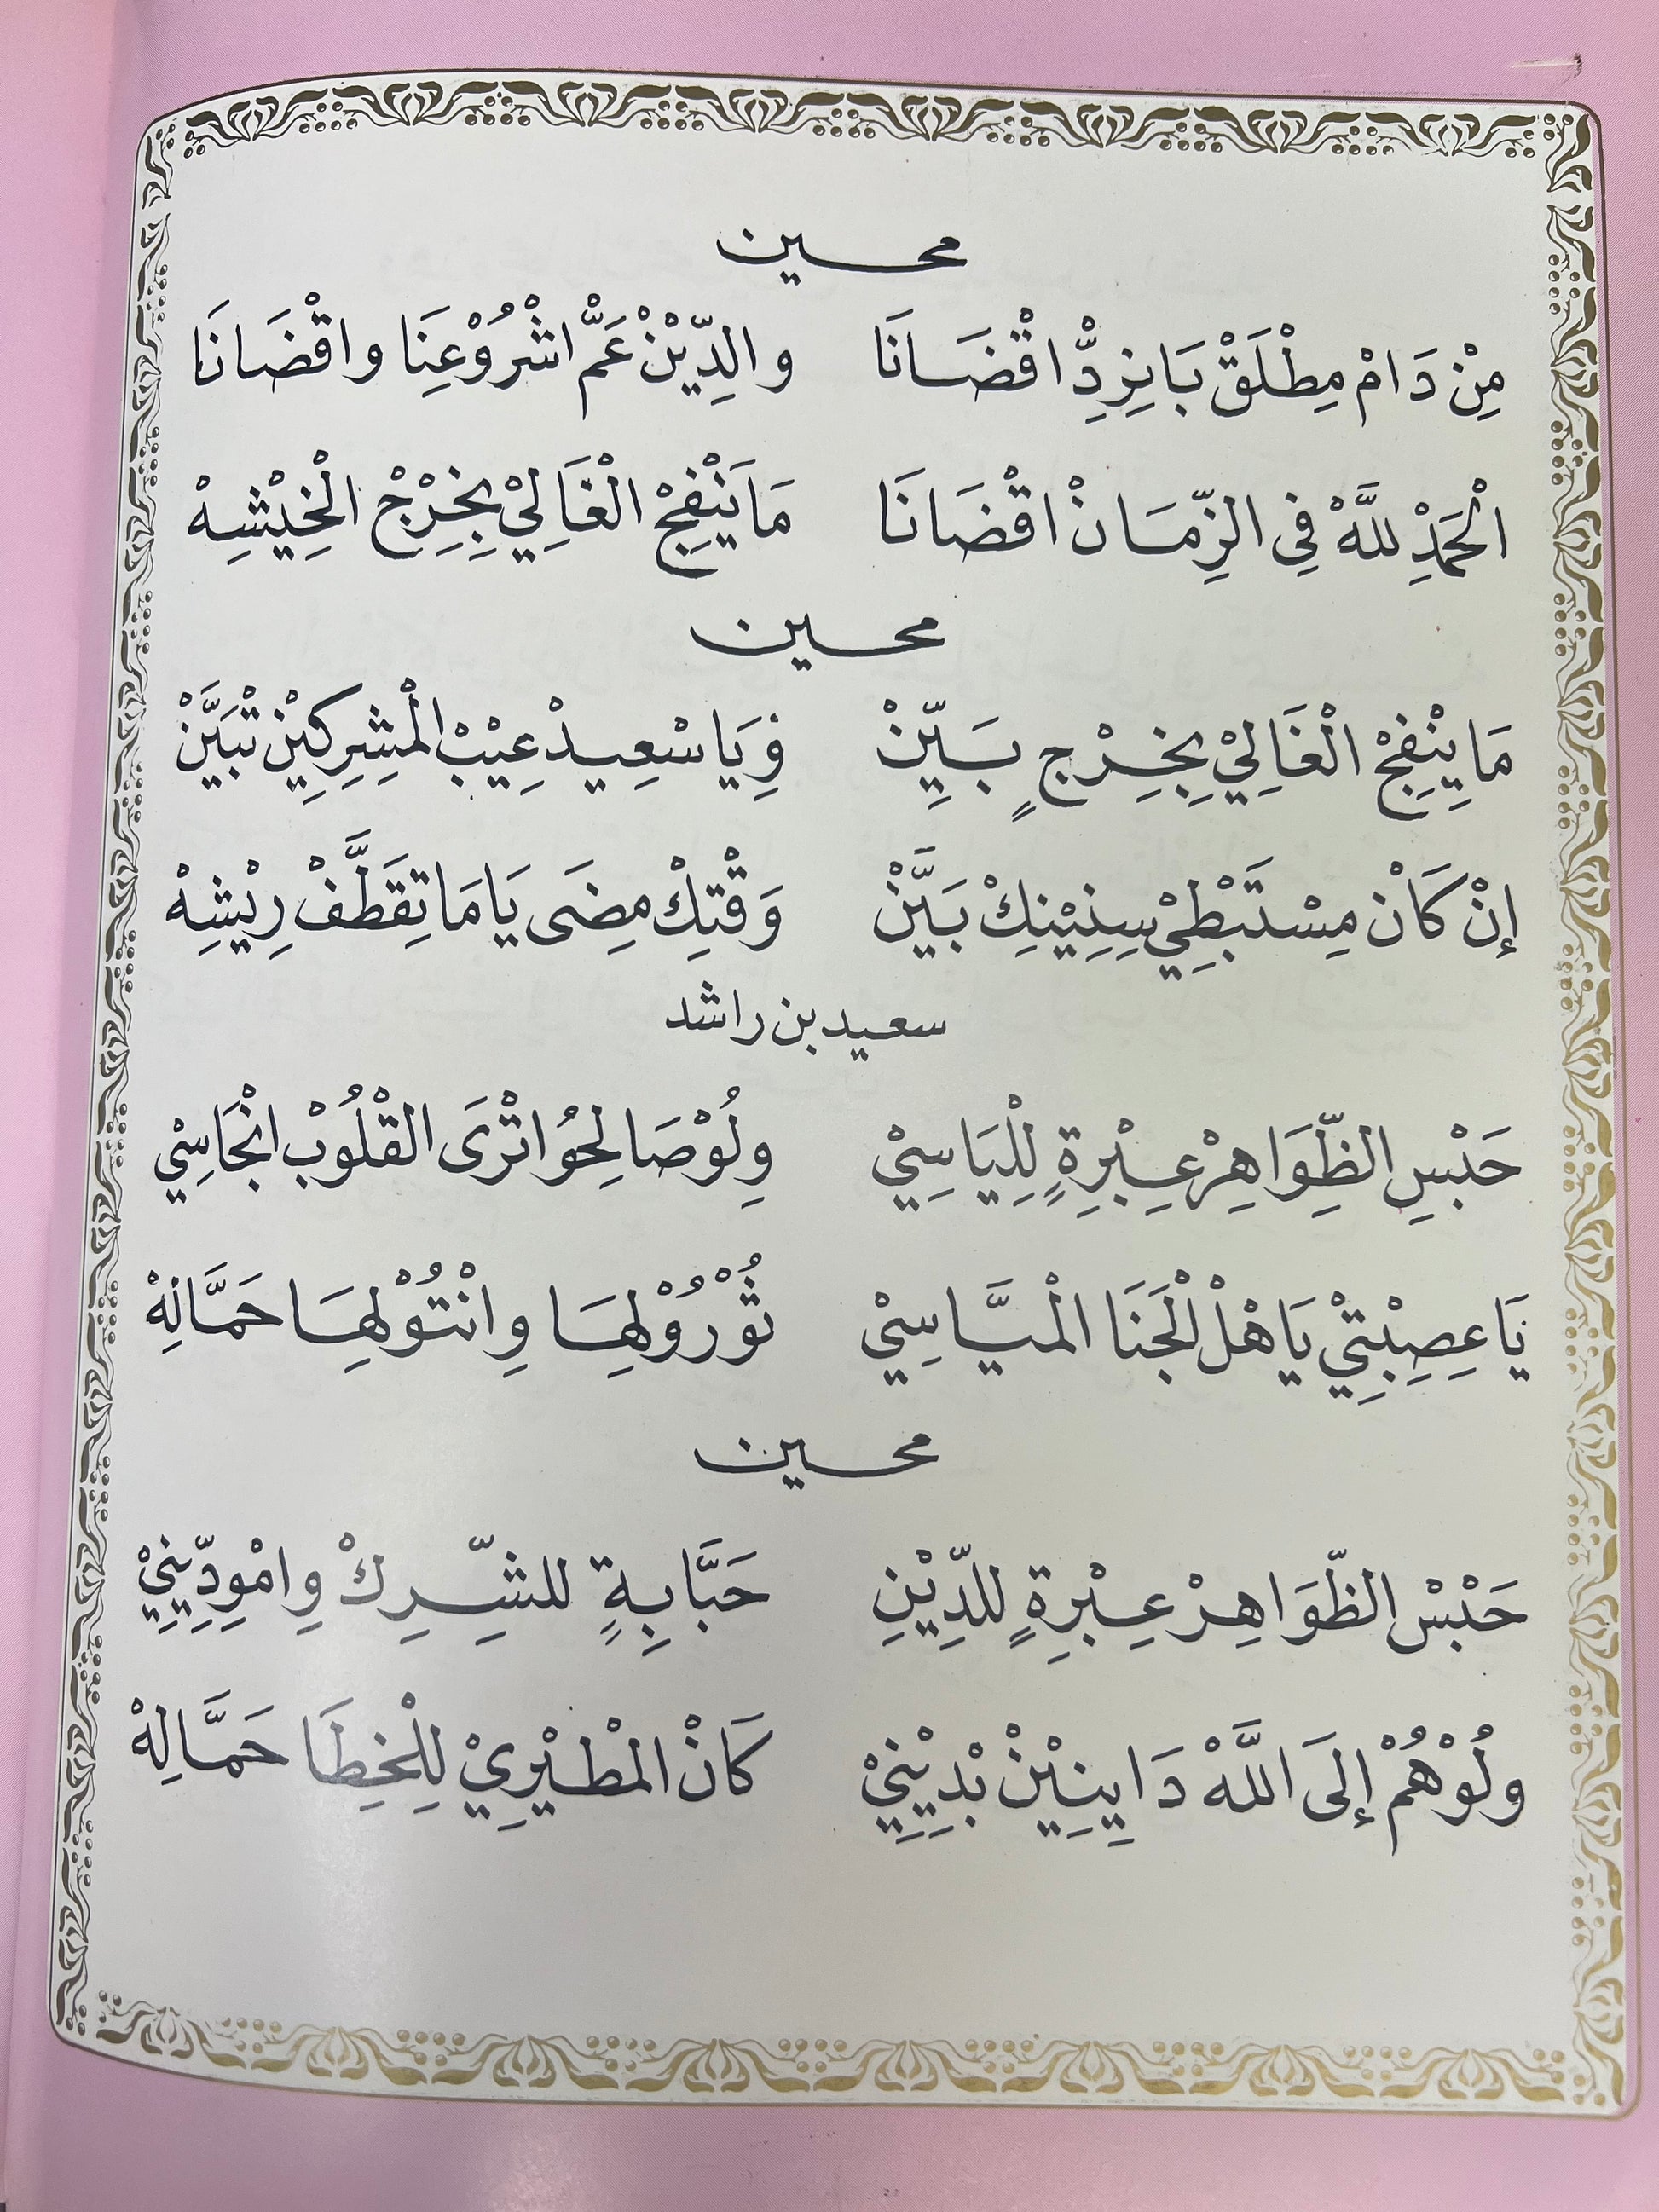 محسين
مِنْ دَامْ مِطْلَقْ بَانِزِدِّ اقْضَانَا والدِّيْنْ عَمَّ اشْرُوْعِنَا واقْضَانَا
الْحَمْدِ للهْ فِي الزِّمَانْ اقْضَانَا مَا يَنْفِجْ الْغَالِيْ بِخِرْجْ الْخِيْشِهْ
محسين
مَا يِنْفِجْ الْغَالِيْ بِخِرْجٍ بَيِّنْ وِيَا سْعِيدْ عِيْبْ الْمِشِرِكِيْنْ تْبَيَّنْ
إنْ كَانْ مِسْتَبْطِيْ سِنِيْنِكْ بَيَّنْ وَقْتِكْ مِضَى يَا مَا تِقَطَّفْ رِيْشِهْ
سعيد بن راشد
حَبْسِ الظِّوَاهِرْ عِبْرِةٍ لِلْيَاسِيْ ولُوْ صَالِحُوا تْرَى القْلُوْبْ انْجَاسِيْ
يَا عِصِبْتِيْ يَاهْلْ الْجَنَا الْمَيَّاسِيْ ثُوْرُوْا لِهَا وِانْتُوْا لِهَا حَمَّالِهْ
محسين
حَبْسْ الظِّوَاهِرْ عِبْرِةٍ للدِّيْنِ حَبَّابِةٍ للشِّرِكْ وِامْوِدِّيْنِيْ
ولُوْ هُمْ إلَى اللهْ دَايِنِيْنْ بْدِيْنِيْ كَانْ الْمْطيْرِيْ لِلْخِطَا حَمَّالِهْ